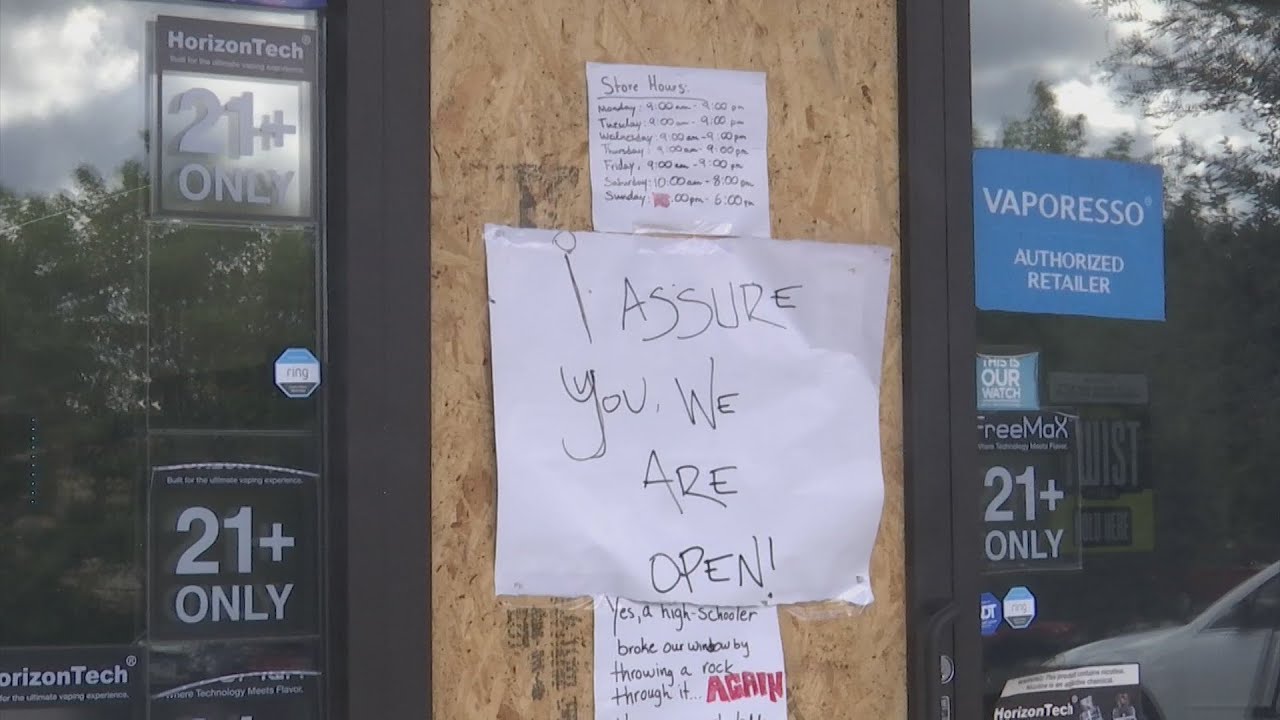 HorizonTech®
Built for the ultimate vaping experience.
21+
ONLY
ring
Built for the ultimate vaping experience.
21+
ONLY
HorizonTech®
for the ultimate vaping experience.
Where Technology Meets Flavor.
Store Hours:
Monday: 9:00 am - 9:00 pm
Tuesday: 9:00 am - 9:00 pm
Wednesday: 9:00 am - 9:00 pm
Thursday: 9:00 am - 9:00 pm
Friday, 9:00 am - 9:00 pm
Saturday: 10:00 am - 8:00 pm
Sunday: :00 pm - 6:00 pm
I ASSURE
YOU, WE
ARE
OPEN!
Yes, a high-schooler
broke our window by
throwing a rock
through it... AGAIN
VAPORESSO®
AUTHORIZED
RETAILER
THIS IS
OUR
WATCH
FreeMaX
Where Technology Meets Flavor.
21+
ONLY
TWIST
SOLD HERE
ADT
ring
WARNING: This product contains nicotine.
Nicotine is an addictive chemical.
HorizonTech®